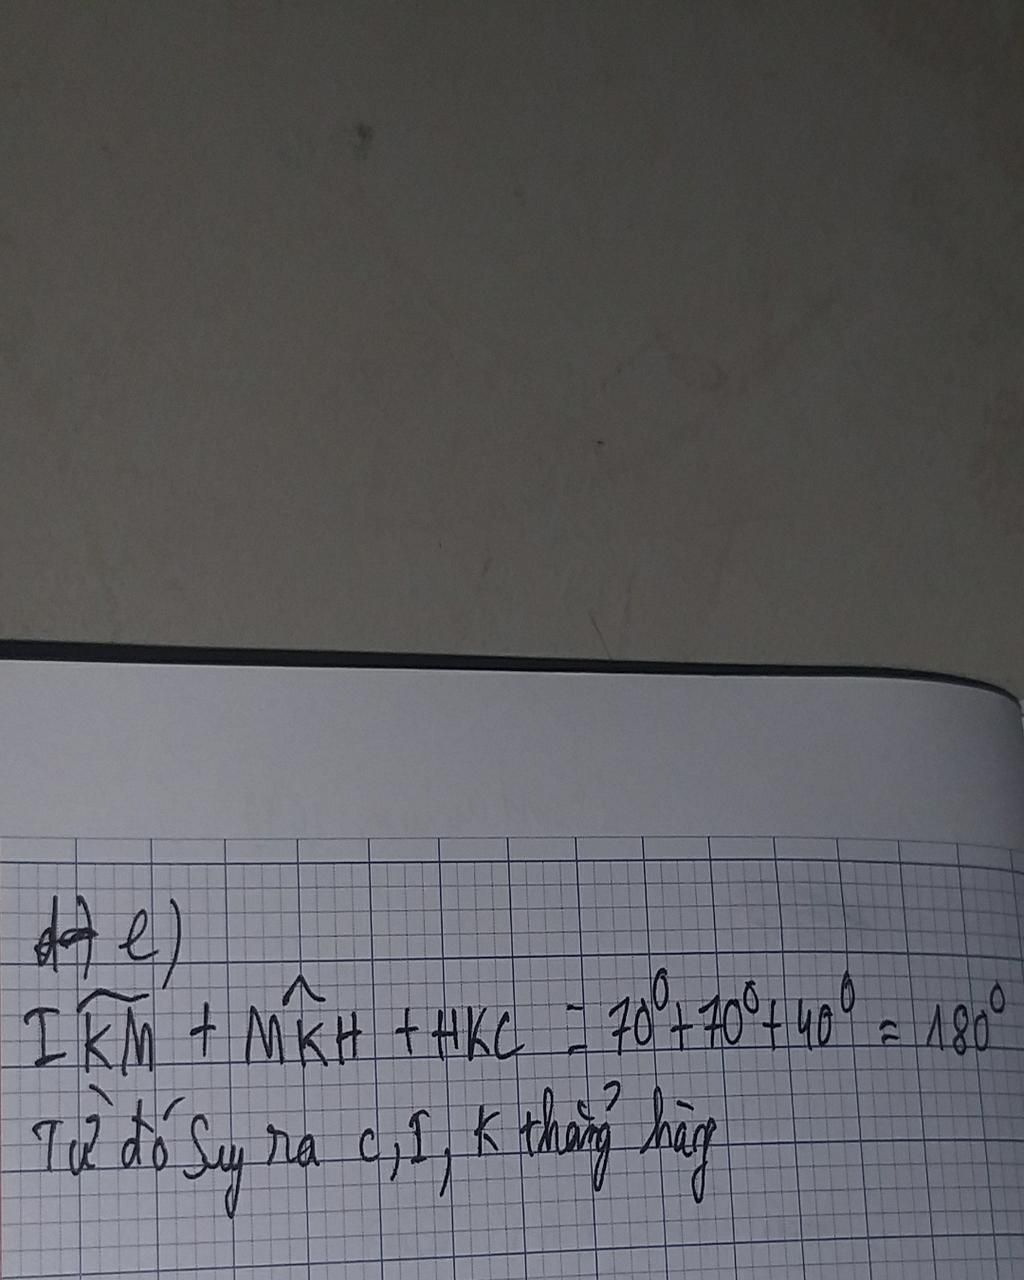 e)
IKM + MKH + HKC = 70⁰ + 70⁰ + 40⁰ = 180⁰
Từ đó suy ra C, I, K thẳng hàng